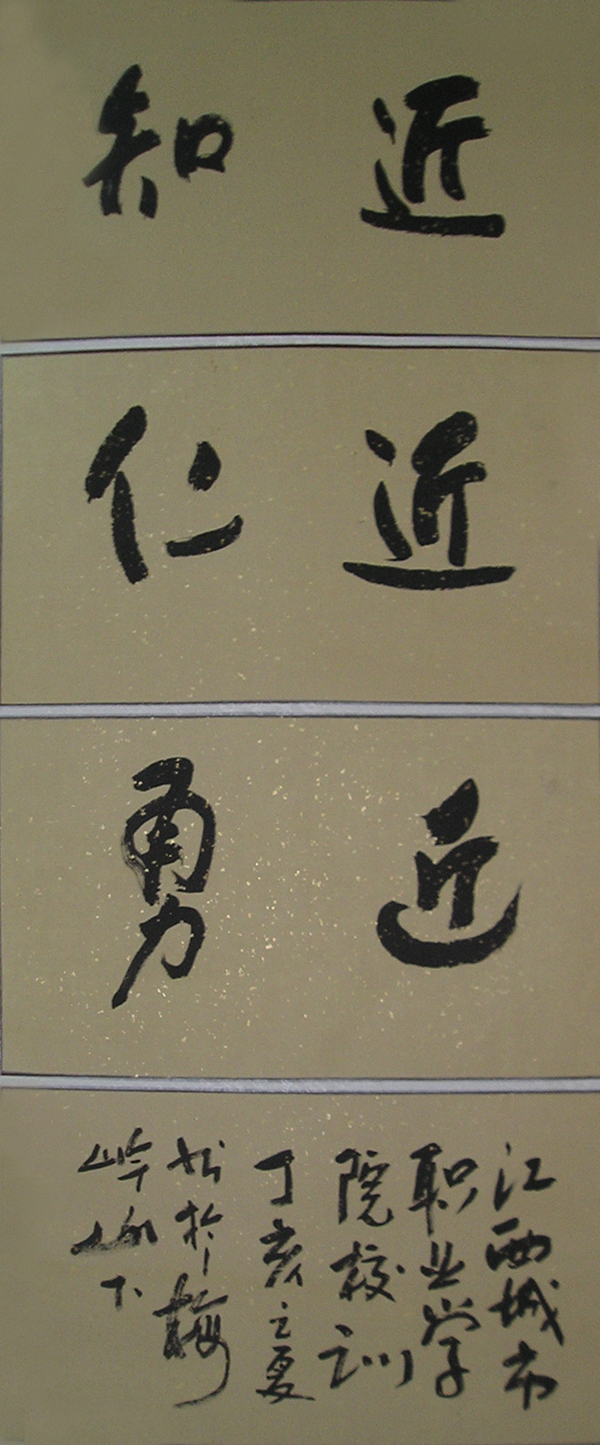 近知
近仁
近勇
江西城市
职业学
院校训
丁亥之夏
於梅
岭山下